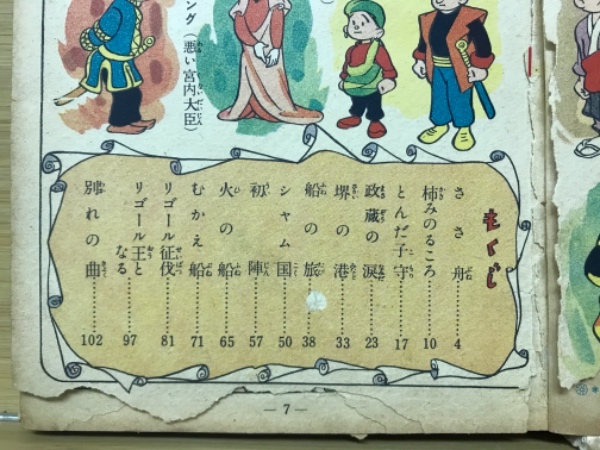 ング(悪い宮内大臣)
もくじ
ささ舟……4
柿みのるころ……10
とんだ子守……17
政蔵の涙……23
堺の港……33
船の旅……38
シャム国……50
初陣……57
火の船……65
むかえ船……71
リゴール征伐……81
リゴール王となる……97
別れの曲……102
— 7 —